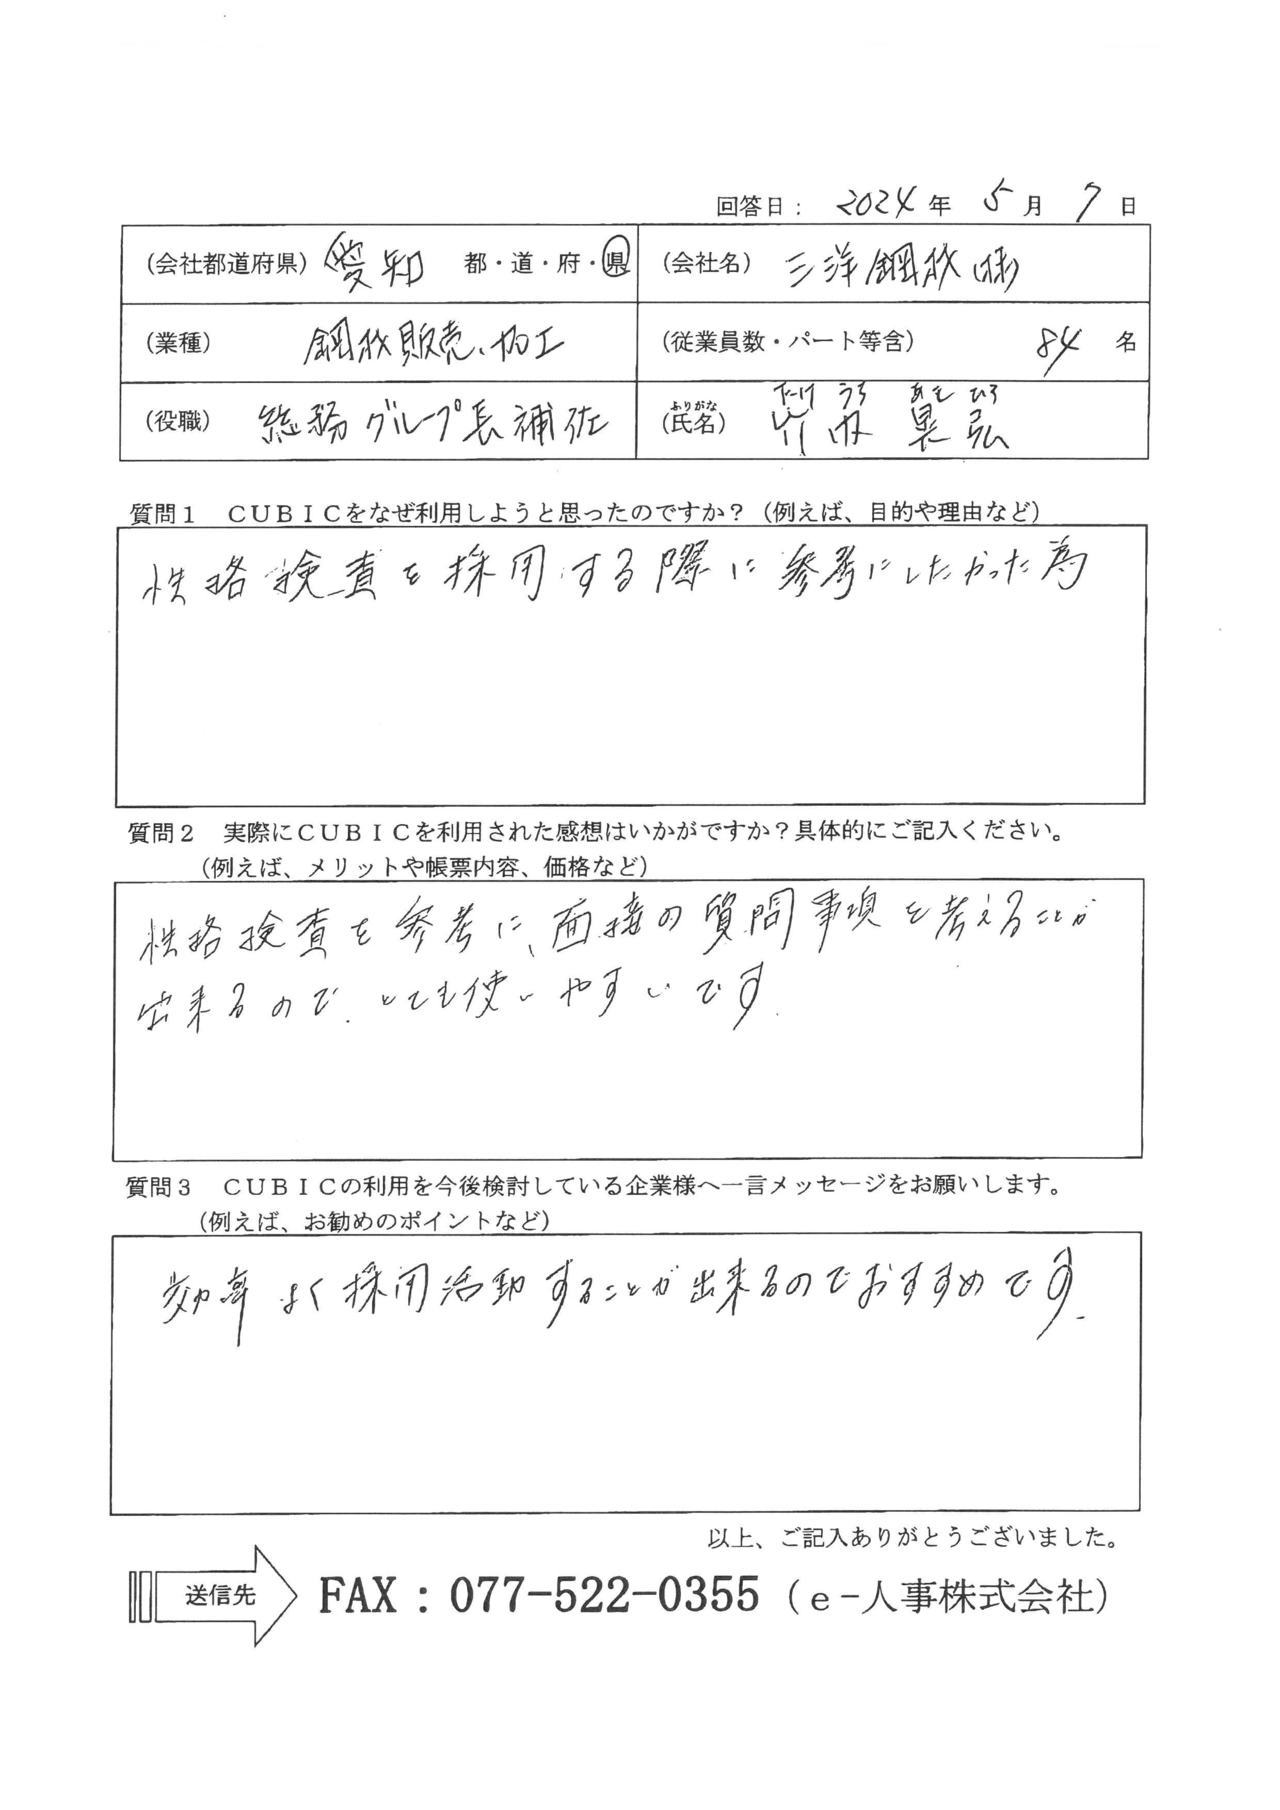 回答日： 2024 年 5 月 7 日
（会社都道府県） 愛知 都・道・府・県 （会社名） 三洋鋼材(株)
（業種） 鋼材販売、加工 （従業員数・パート等含） 84 名
たけ うち あき ひろ
（役職） 総務グループ長補佐 ふりがな （氏名） 竹内 弘
質問１ ＣＵＢＩＣをなぜ利用しようと思ったのですか？（例えば、目的や理由など）
性格検査を採用する際に参考にしたかった為
質問２ 実際にＣＵＢＩＣを利用された感想はいかがですか？具体的にご記入ください。
（例えば、メリットや帳票内容、価格など）
性格検査を参考に、面接の質問事項を考えることが
出来るので、とても使いやすいです
質問３ ＣＵＢＩＣの利用を今後検討している企業様へ一言メッセージをお願いします。
（例えば、お勧めのポイントなど）
効率よく採用活動することが出来るのでおすすめです。
以上、ご記入ありがとうございました。
送信先 FAX：077-522-0355（e-人事株式会社）